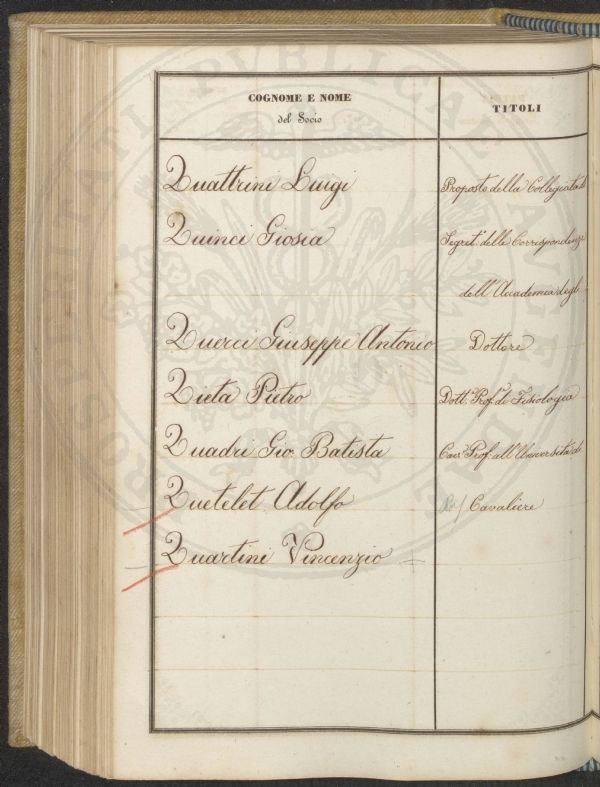 COGNOME E NOME
del Socio
TITOLI
Quattrini Luigi
Proposto della Collegiata di
Quinci Giosia
Segret. delle Corrispondenze
dell'Accademia degli
Querci Giuseppe Antonio
Dottore
Qieta Pietro
Dott. Prof. di Fisiologia
Quadri Gio. Batista
Cav. Prof. all'Università di
Quetelet Adolfo
Cavaliere
Quartini Vincenzio